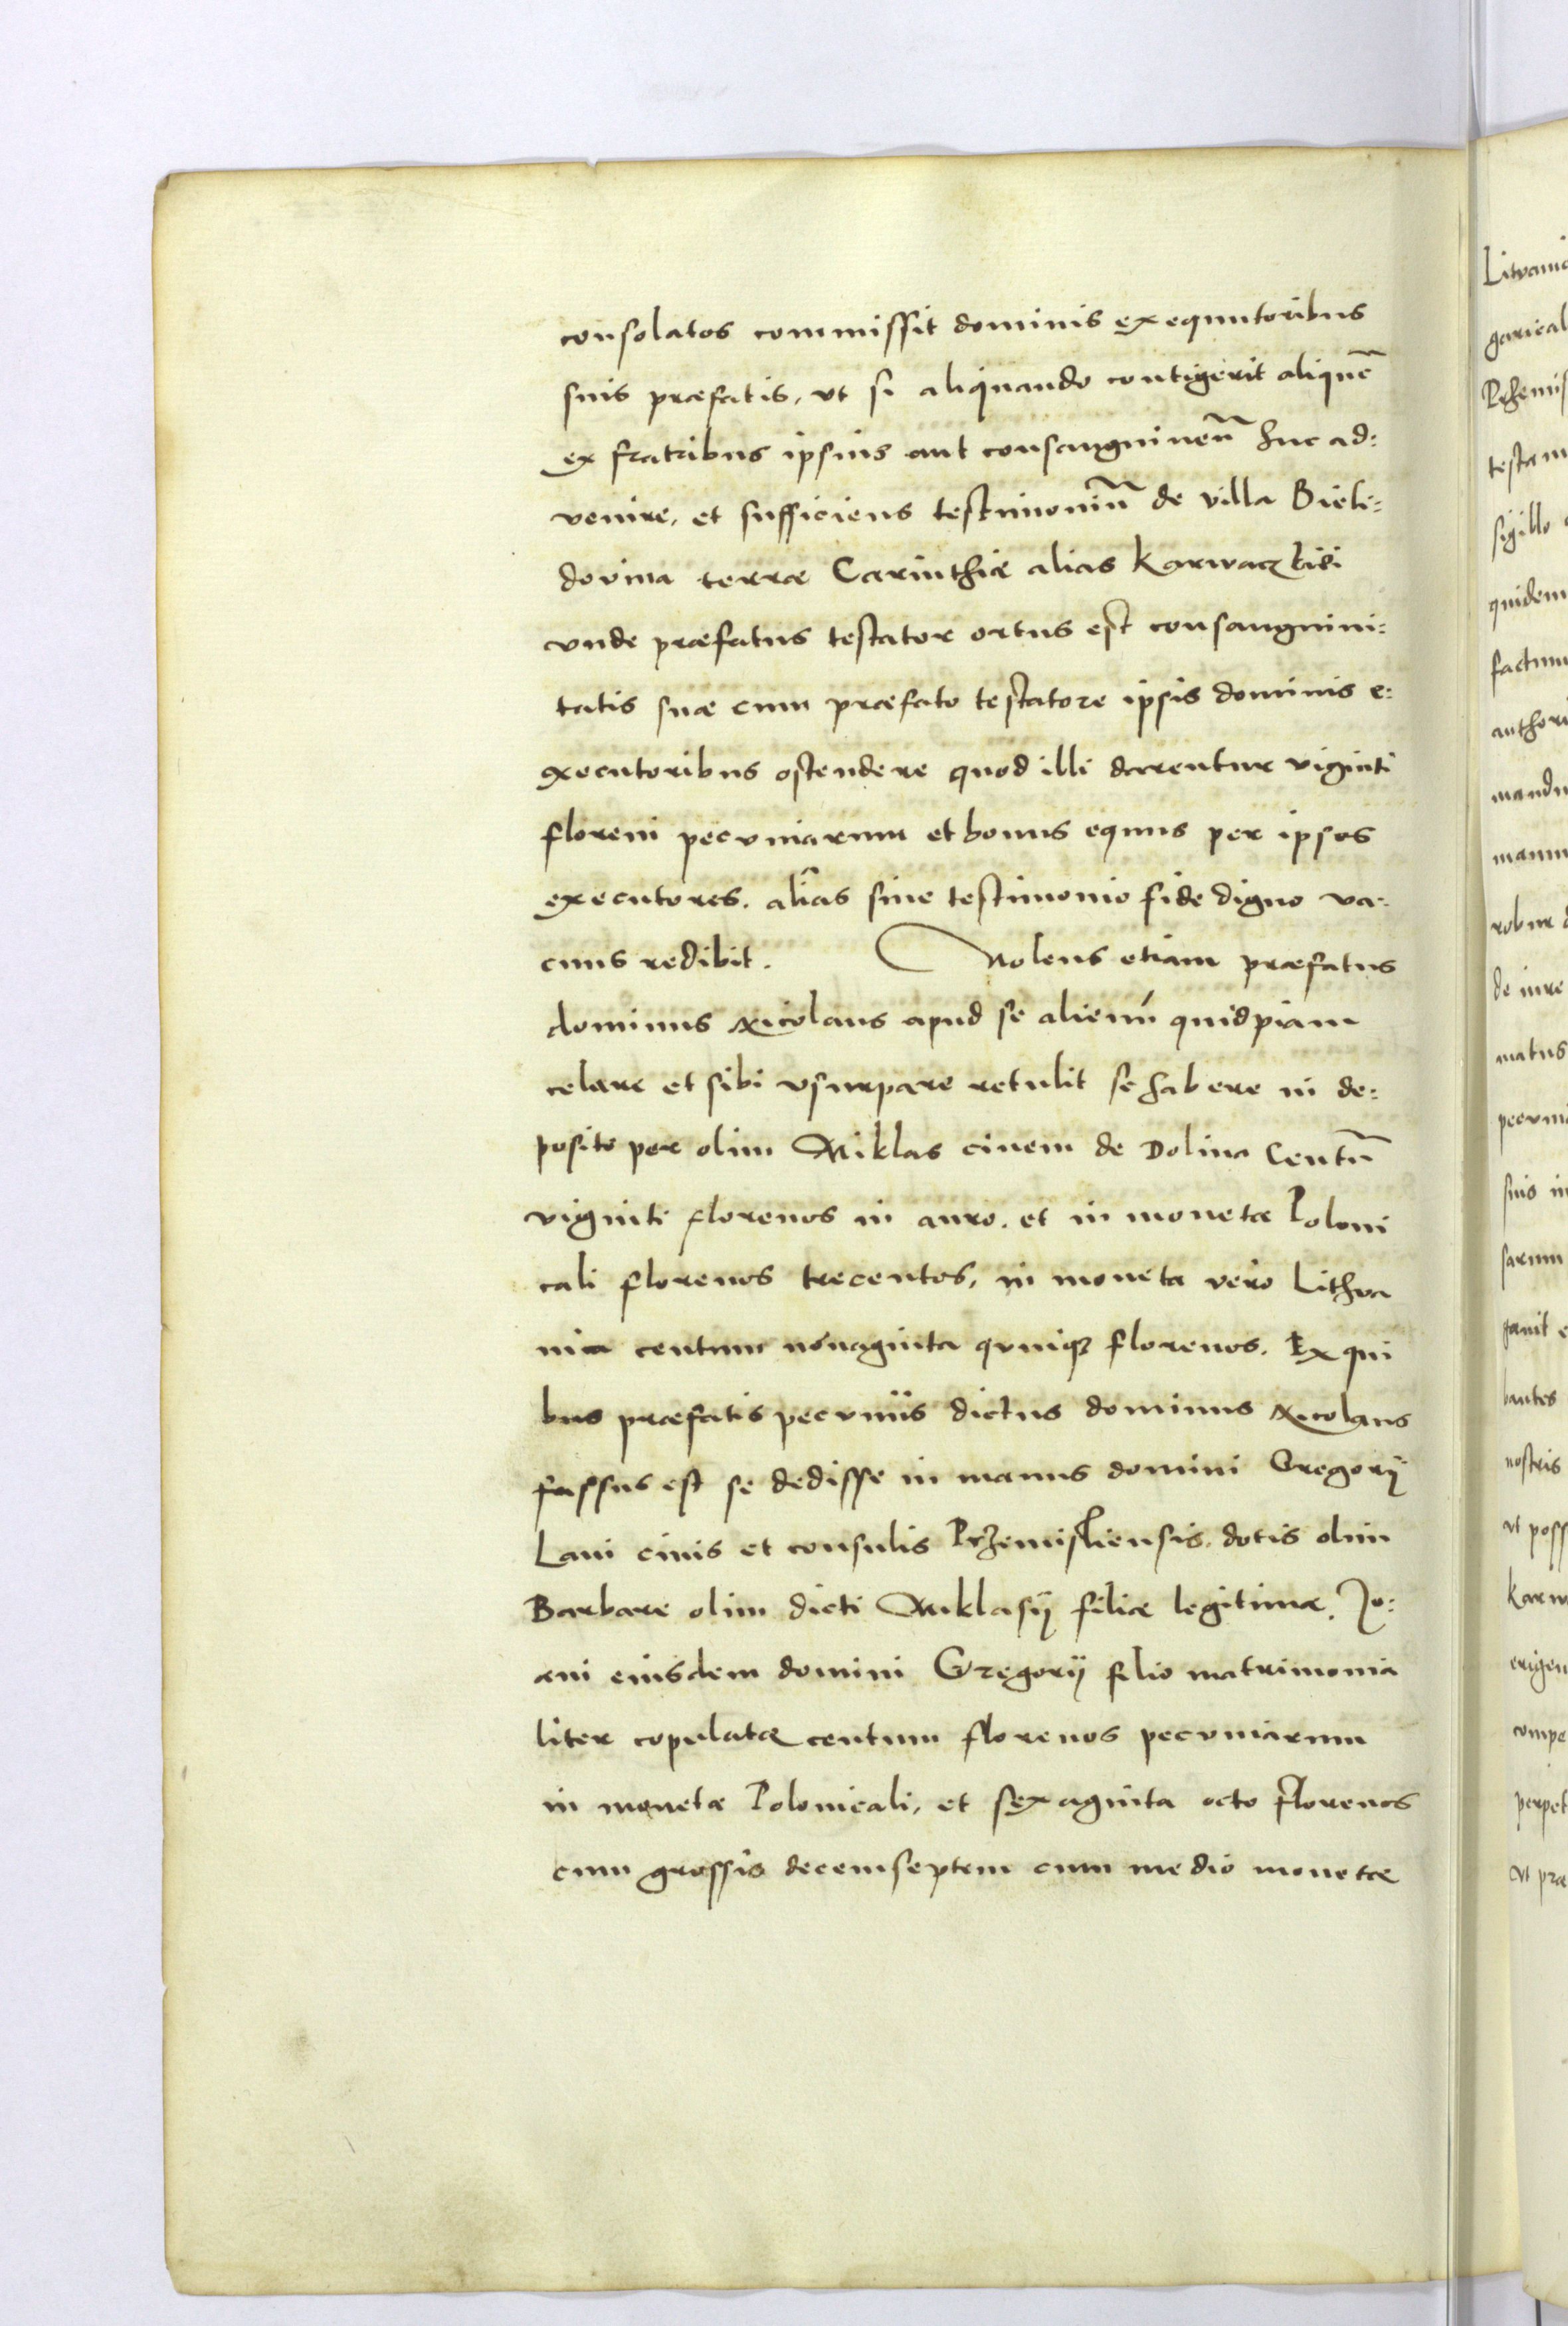 consolatos commissit dominis exequutoribus
suis præfatis, vt si aliquando contigerit aliquē
ex fratribus ipsius aut consanguineū huc ad:
venire, et sufficiens testimoniū de villa Bieli:
dovina terræ Carinthiæ alias Karwaczkiei
vnde præfatus testator ortus est consanguini:
tatis suæ cum præfato testatore ipsis dominis e:
xecutoribus ostendere quod illi darentur viginti
floreni pecuniarum et bonus equus per ipsos
executores. alias sine testimonio fide digno va:
cuus redibit. Nolens etiam præfatus
dominus Nicolaus apud se alienū quidpiam
celare et sibi vsurpare retulit se habere in de:
posito per olim Miklas ciuem de Dolina Centū
viginti florenos in auro. et in moneta Poloni
cali florenos trecentos, in moneta vero Lithva
nica centum nonaginta quinq3 florenos. Ex qui
bus præfatis pecuniis dictus dominus Nicolaus
fassus est se dedisse in manus domini Gregorij
Lani ciuis et consulis Przemisliensis, dotis olim
Barbare olim dicti Miklasij filiæ legitimæ. Jo:
ani eiusdem domini Gregorij filio matrimonia
liter copulatæ centum florenos pecuniarum
in moneta Polonicali, et sexaginta octo florenos
cum grossis decemseptem cum medio monetæ
Litvanic
garical
Przemis
testam
sigillo
quidem
factum
authori
mandu
manu
robur
de iure
natus
pecuni
suis in
sarum
gauit e
bantes
nostris
vt poss
Karw
erigen
compe
perpet
vt præ